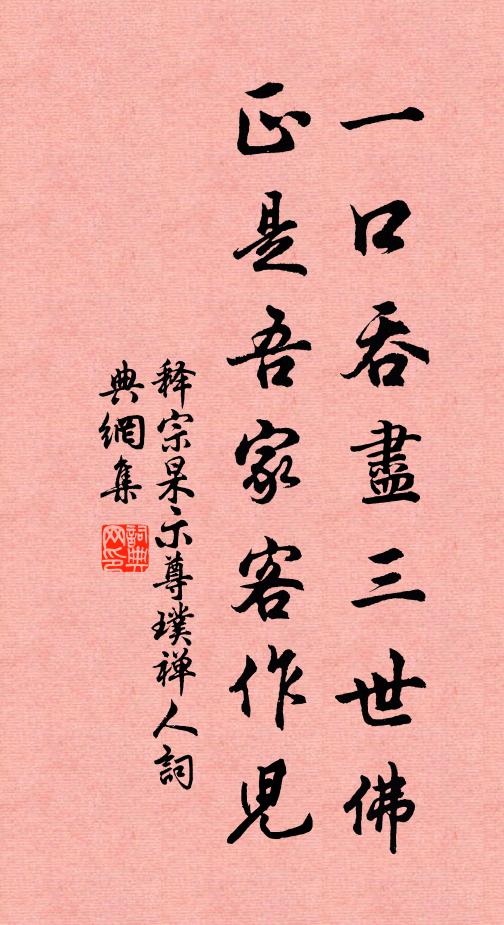 一口吞盡三世佛
正是吾家客作兒
释宗杲示尊璞禅人詞
典網集
詞典網印